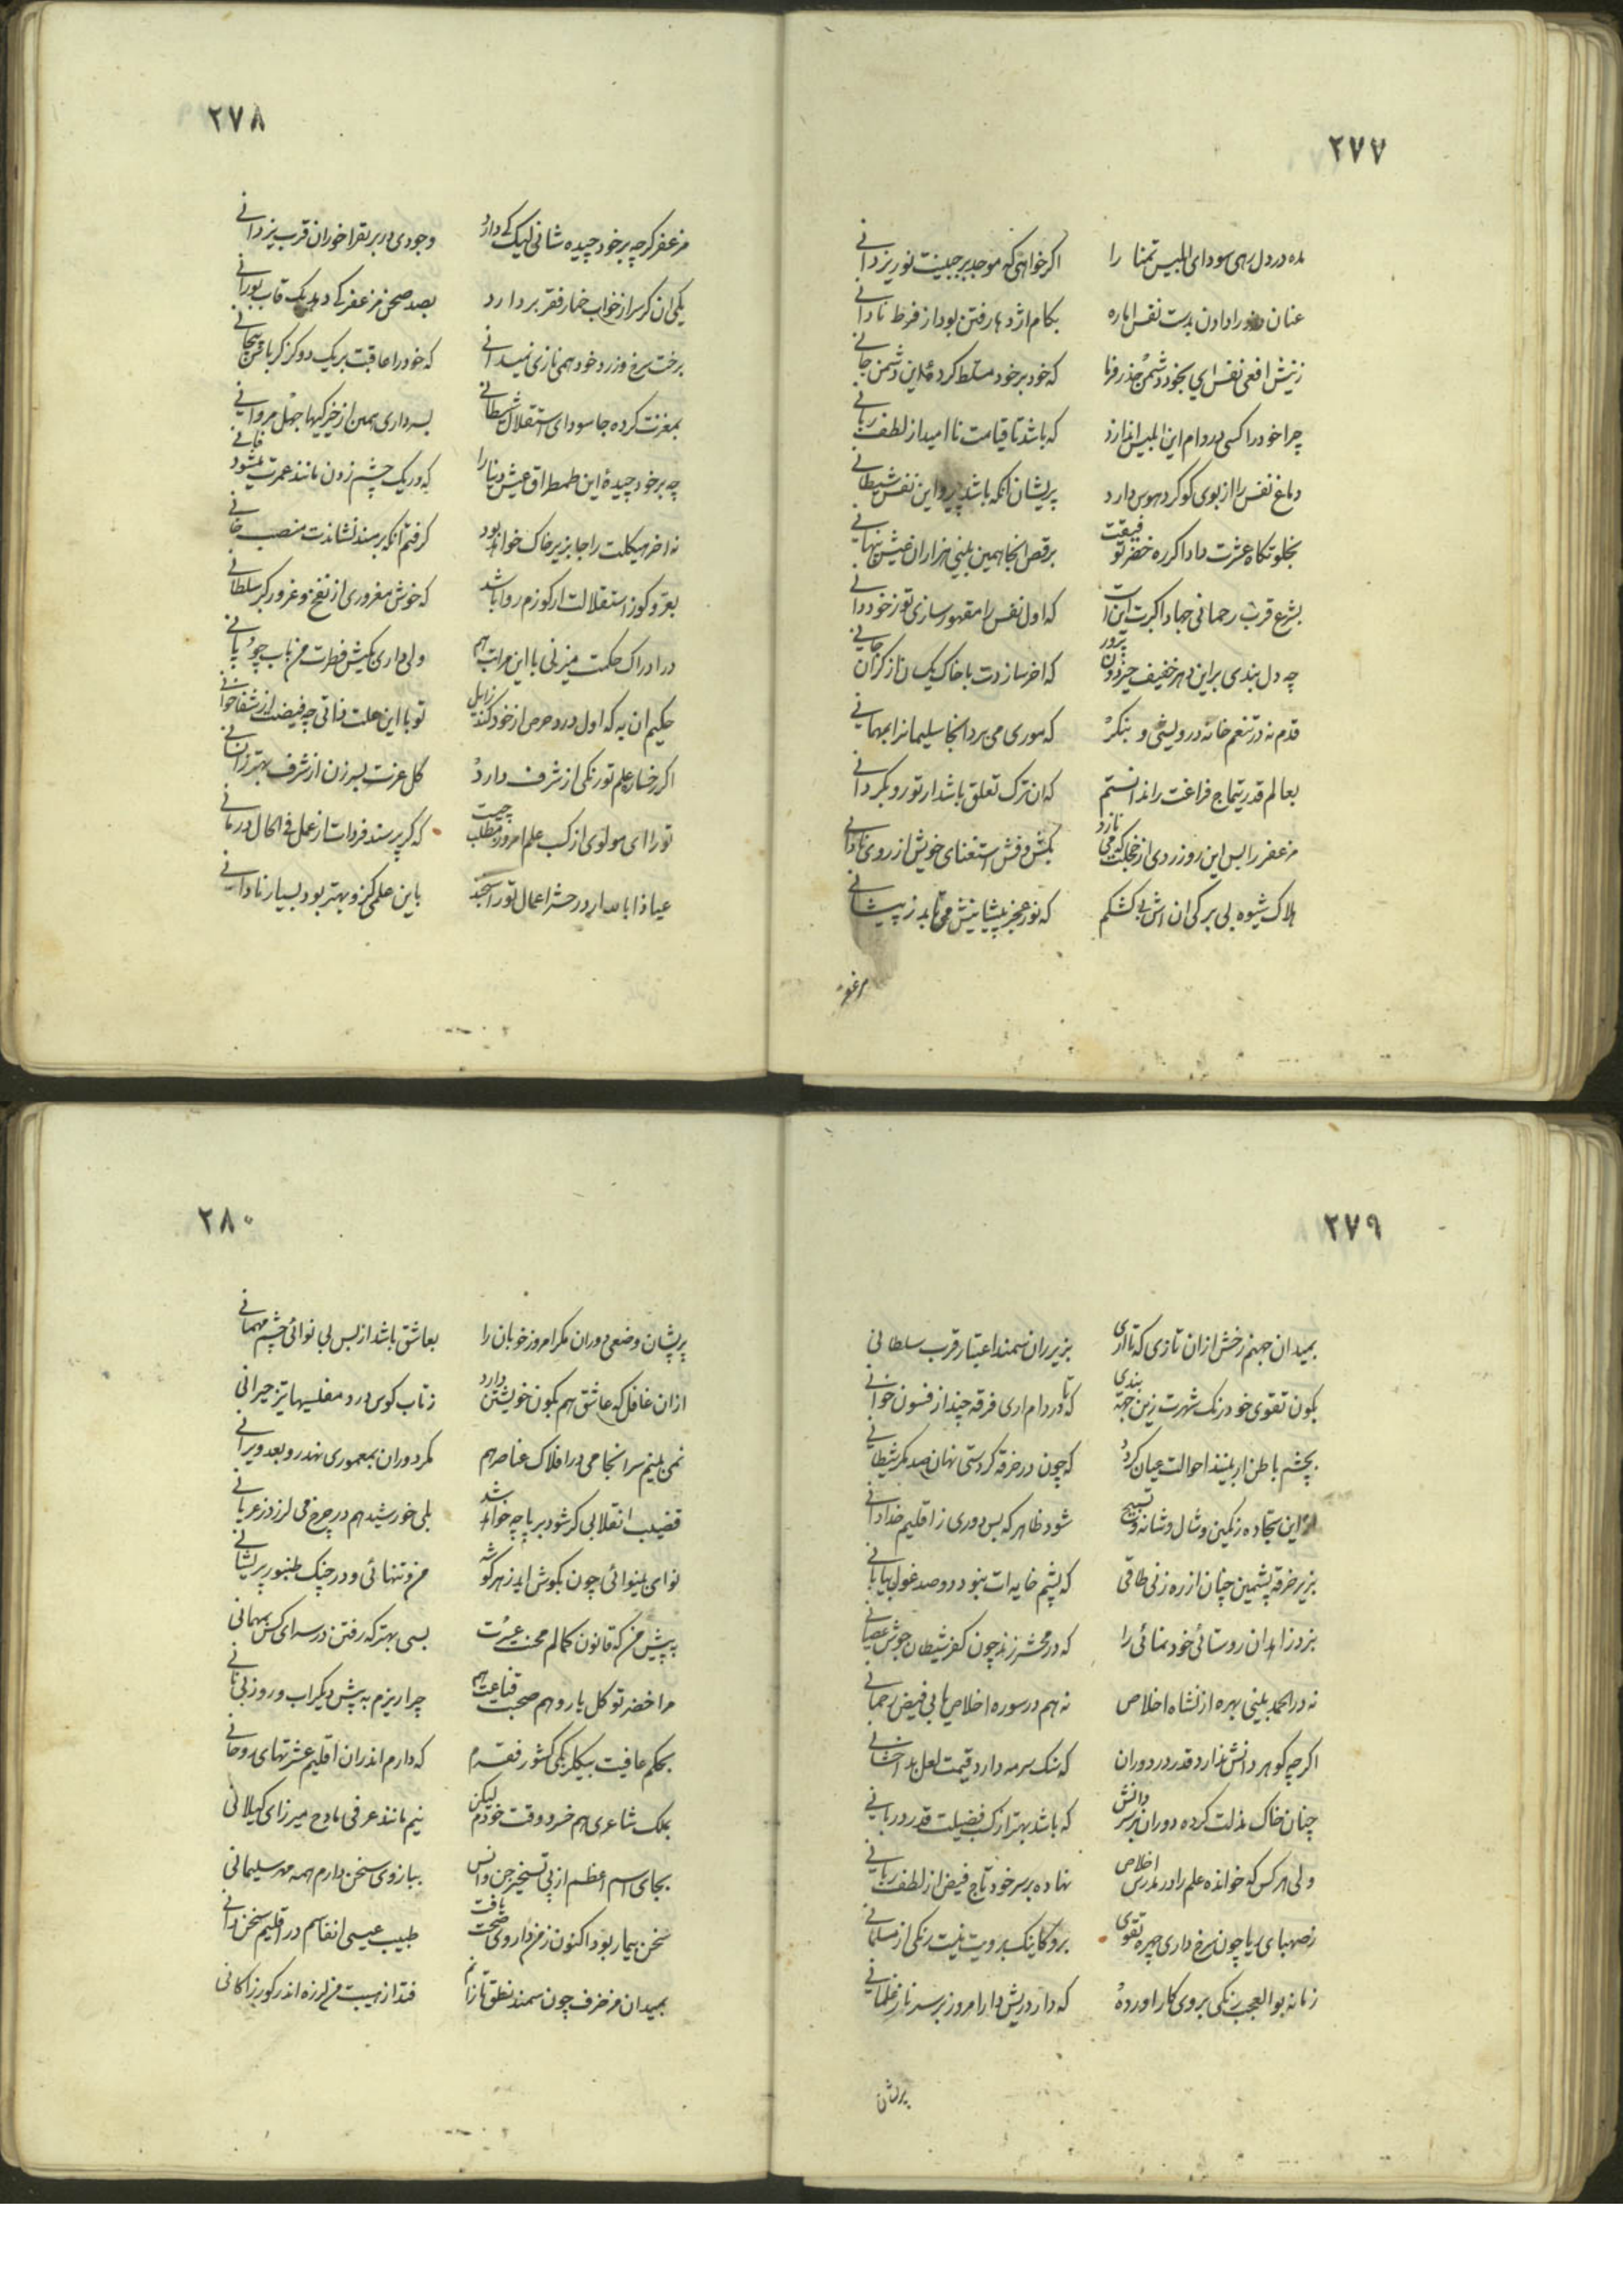 ۲۷۷
مده در دل رهی سودای ابلیس تمنا را اکر خواهی که موجد بر جبینت نور یزدانی
عنان خود را دادن بدست نفس اماره بکام اژدها رفتن بود از فرط نادانی
زنیش افعی نفس ای بخود دشمن حذر فرما که خود بر خود مسلط کردهٔ این دشمن جانی
چرا خود را کسی در دام این ابلیس اندازد که باشد تا قیامت ناامید از لطف ربانی
دماغ نفس را از بوی کوکرد هوس دارد پریشان انکه باشد پیرو این نفس شیطانی
بخلوتکاه عشرت داد اکر ره خضر توفیقت برقص انجا همین بینی هزاران عیش پنهانی
بشرع قرب رحمانی جهاد اکبرت این است که اول نفس را مقهور سازی تو ز خود دانی
چه دل بندی براین دهر خفیف حیز دون پرور که اخر سازدت با خاک یکسان از کران جانی
قدم نه در تنعم خانه درویشی و بنکر که موری می برد انجا سلیمانرا بمهمانی
بعالم قدر یتماج فراغت را ندانستم که ان ترک تعلق باشد ار تو رو بکردانی
مزعفر را بس این رو زردی از خجلت که می نازد بکش و فش استغنای خویش از روی نادانی
هلاک شیوه بی برکی ان اش بی کشکم که نور عجز پیشانیش می تابد ز پیشانی
مزعفر
۲۷۸
مزعفر کرچه بر خود چیده شانی لیک کی دارد وجودی در بر بقراخوران قرب یزدانی
یکی ان کر سر از خواب خمار فقر بردارد بصد صحن مزعفر کی دهد یک قاب بورانی
برخت سرخ و زرد خود همی نازی نمیدانی که خود را عاقبت بر یک دو کز کرباس
بمغزت کرده جا سودای استقلال شیطانی بسر داری همین از خیرکیها جهل مروانی
چه بر خود چیدهٔ این طمطراق عیش دنیا را که در یک چشم زدن مانند عمرت میشود فانی
نه اخر هیکلت را جا بزیر خاک خواهد بود کرفتم انکه بر مسند نشاندت منصب خانی
بعر و کوز استقلالت ار کوزم روا باشد که خوش مغروری از نفخ و غرور کبر سلطانی
در ادراک حکمت میزنی با این مراتب هم ولی داری بکیش فطرت من ناب چوپانی
حکیم ان به که اول درد حرص از خود کند زایل تو با این علت ذاتی چه فیضت از شفاخوانی
اکر رخسار علم تو رنکی از شرف دارد کل عزت بسر زن از شرف بهتر ز انسانی
تو را ای مولوی از کسب علم امروز مطلب چیست که کر پرسند فردات از عمل فی الحال درمانی
عیاذا بالله ار در حشر اعمال تو را سنجند باین علمی کزو بهتر بود بسیار نادانی
۲۷۹
بمیدان جهنم رخش ازان تازی که تا اری بزیر ران سمند اعتبار قرب سلطانی
بکون تقوی خود زنک شهرت زین جهة بندی که تا در دام اری فرقه چند از فسون خوانی
بچشم باطن ار بینند احوالت عیان کردد که چون در خرقه کردستی نهان صد مکر شیطانی
از این سجاده رنکین و شال و شانه و تسبیح شود ظاهر که بس دوری ز اقلیم خدادانی
بزیر خرقه پشمین چنان از ره زنی طاقی که پشم خایه ات نبود دو صد غول بیابانی
بنزد زاهدان روستائی خود نمائی را که در محشر زند چون کفر شیطان جوش عصیانی
نه در الحمد بینی بهره از نشاه اخلاص نه هم در سوره اخلاص یابی فیض رحمانی
اکرچه کوهر دانش ندارد قدر در دوران که سنک سرمه دارد قیمت لعل بدخشانی
چنان خاک مذلت کرده دوران بر سر دانش که باشد بهتر از کسب فضیلت قدر دربانی
ولی هر کس که خوانده علم را در مدرس اخلاص نهاده بر سر خود تاج فیض از لطف ربانی
ز صهبای ریا چون سرخ داری چهره تقوی برو کاینک برویت نیست رنکی از مسلمانی
زمانه بوالعجب رنکی بروی کار اورده که دارد ریش دار امروز بر سر ناز غلمانی
پریشان
۲۸۰
پریشان وضعی دوران مکر امروز خوبان را بعاشق باشد از بس بی نوائی چشم مهمانی
ازان غافل که عاشق هم بکون خویشتن دارد ز تاب کوس درد مفلسیها تیز حیرانی
نمی بینم سرانجامی در افلاک عناصر هم مکر دوران بمعموری نهد رو بعد ویرانی
قضیب انقلابی کر شود بر پا چه خواهد شد بلی خورشید هم در چرخ می لرزد ز عریانی
نوای بینوائی چون بکوش اید ز هر کوشه من و تنهائی و در چنک طنبور پریشانی
به پیش من که قانون کمالم محنت عسرت بسی بهتر که رفتن در سرای کس بمهمانی
مرا خضر توکل یار و هم صحبت قناعت هم چرا ریزم به پیش دیکر اب رو ز بی نانی
بحکم عافیت بیکلربکی کشور فقرم که دارم اندران اقلیم عشرتهای روحانی
بملک شاعری هم خسرو وقت خودم لیکن نیم مانند عرفی مادح میرزای کیلانی
بجای اسم اعظم از پی تسخیر جن و انس ببازوی سخن دارم همه مهر سلیمانی
سخن بیمار بود اکنون ز من داروی صحت یافت طبیب عیسی انفاسم در اقلیم سخن دانی
بمیدان مزخرف چون سمند نطق تازانم فتد از هیبت من لرزه اندر کور زاکانی